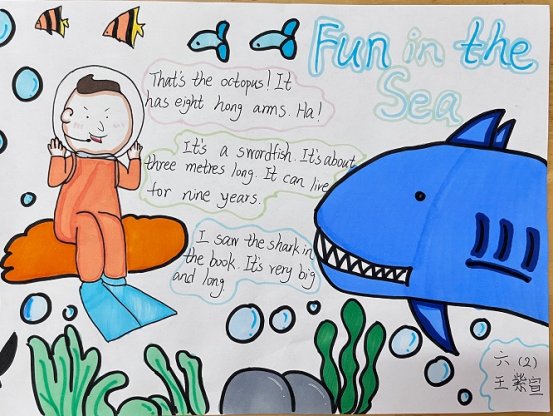 Fun in the
Sea
That's the octopus! It
has eight hong arms. Ha!
It's a swordfish. It's about
three metres long. It can live
for nine years.
I saw the shark in
the book. It's very big
and long
六 (2)
王 紫宣